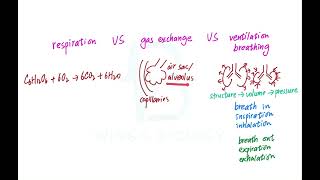 respiration VS gas exchange VS ventilation
breathing
C6H12O6 + 6O2 → 6CO2 + 6H2O
air sac/
alveolus
capillaries
structure → volume → pressure
breath in
inspiration
inhalation
breath out
expiration
exhalation